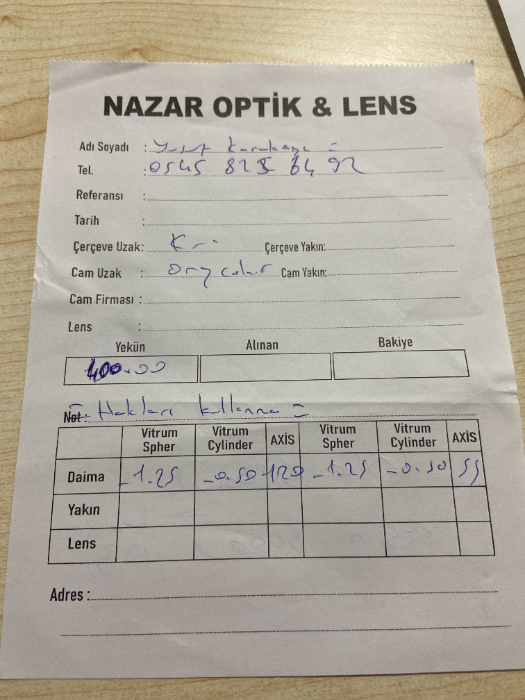 NAZAR OPTİK & LENS
Adı Soyadı : Yusuf Karakaya
Tel. : 0545 828 64 92
Referansı :
Tarih :
Çerçeve Uzak: Çerçeve Yakın:
Cam Uzak : Cam Yakın:
Cam Firması :
Lens :
Yekün Alınan Bakiye
400.00
Not: Hakları kullanma =
Vitrum Spher Vitrum Cylinder AXİS Vitrum Spher Vitrum Cylinder AXİS
Daima -1.25 -0.50 120 -1.25 -0.50 55
Yakın
Lens
Adres :